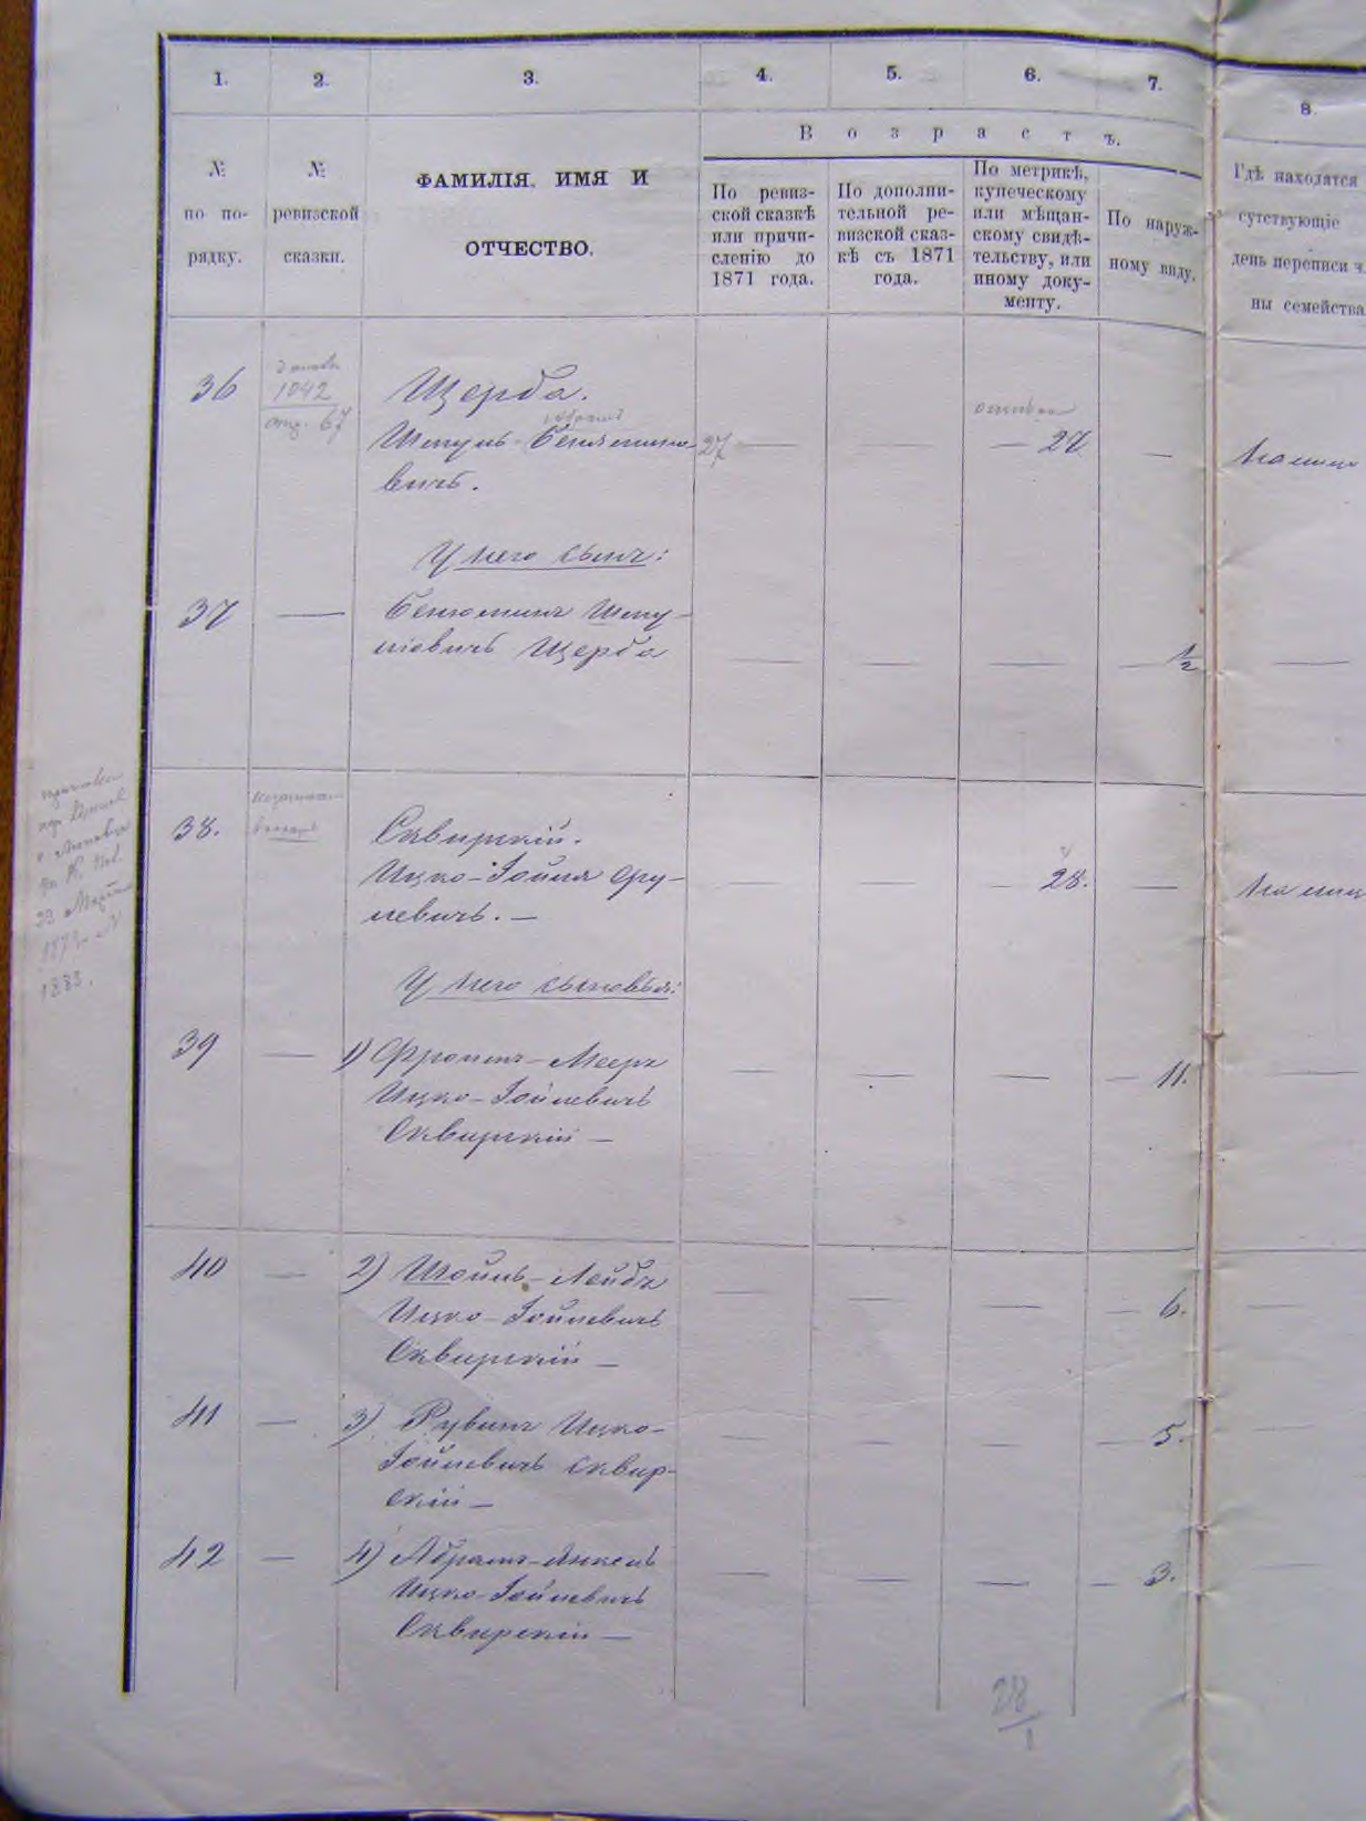 1.
2.
3.
4.
5.
6.
7.
8
Возрастъ.
№
по по-
рядку.
№
ревизской
сказки.
ФАМИЛІЯ, ИМЯ И
ОТЧЕСТВО.
По ревиз-
ской сказкѣ
или причи-
сленію до
1871 года.
По дополни-
тельной ре-
визской сказ-
кѣ съ 1871
года.
По метрикѣ,
купеческому
или мѣщан-
скому свидѣ-
тельству, или
иному доку-
менту.
По наруж-
ному виду.
Гдѣ находятся
сутствующіе
день переписи ч
ны семейства
36
1042
67
Щерба.
Шмуль Бенюмино
вичъ.
27 —
—
— 27
—
У него сынъ:
37
—
Бенюминъ Шму-
ліовичъ Щерба
—
—
—
— 1/2
—
38.
Сквирскій.
Ицко-Іойня Сру-
левичъ. —
—
—
— 28.
—
У него сыновья:
39
—
1) Фроимъ-Мееръ
Ицко-Іойневичъ
Сквирскій —
—
—
—
— 11.
—
40
—
2) Шоиль-Лейбъ
Ицко-Іойневичъ
Сквирскій —
—
—
—
— 6.
—
41
—
3) Рувинъ Ицко-
Іойневичъ Сквир-
скій —
—
—
—
— 5.
—
42
—
4) Абрамъ-Янкель
Ицко-Іойневичъ
Сквирскій —
—
—
—
— 3.
—
28/1
1883.